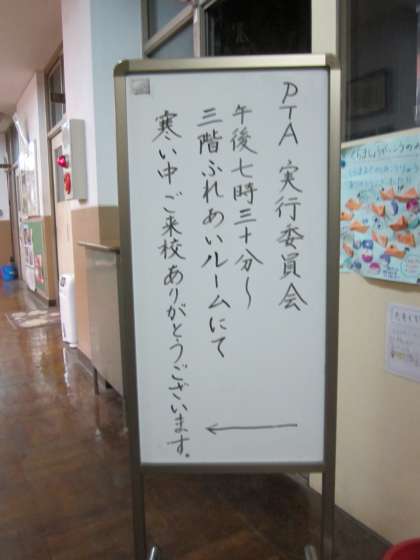 PTA 実行委員会
午後七時三十分〜
三階ふれあいルームにて
寒い中ご来校ありがとうございます。